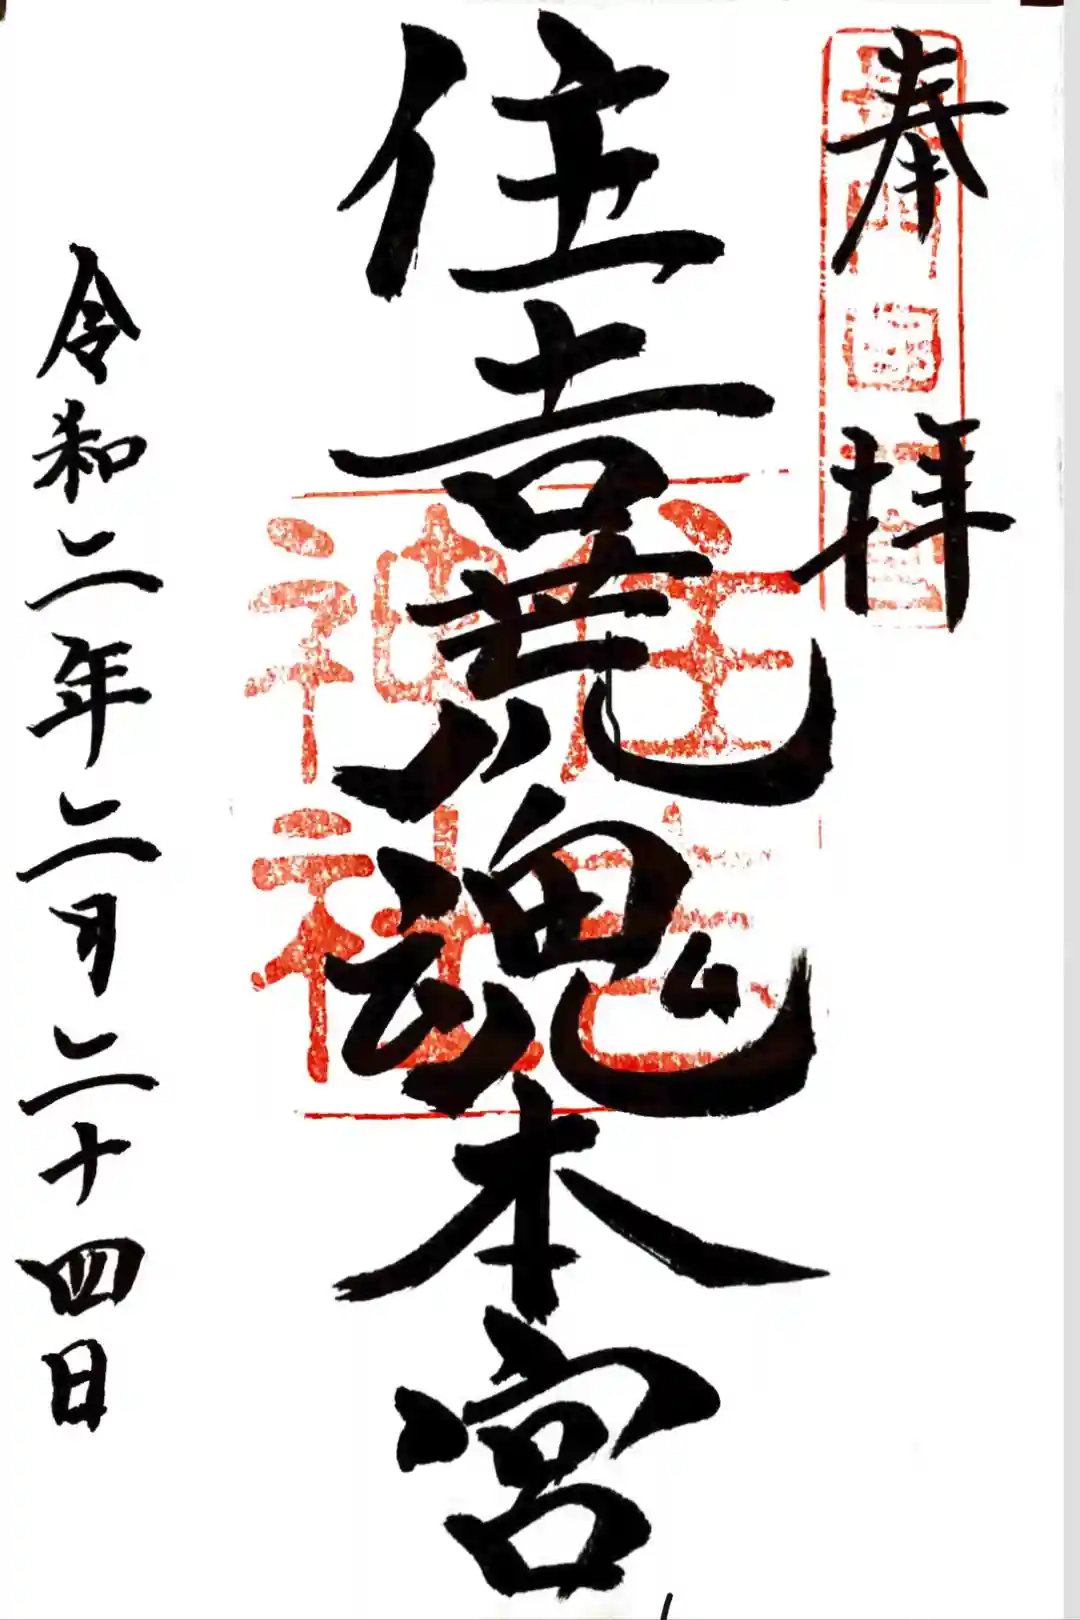 奉拝
住吉荒魂本宮
住吉神社
令和二年二月二十四日